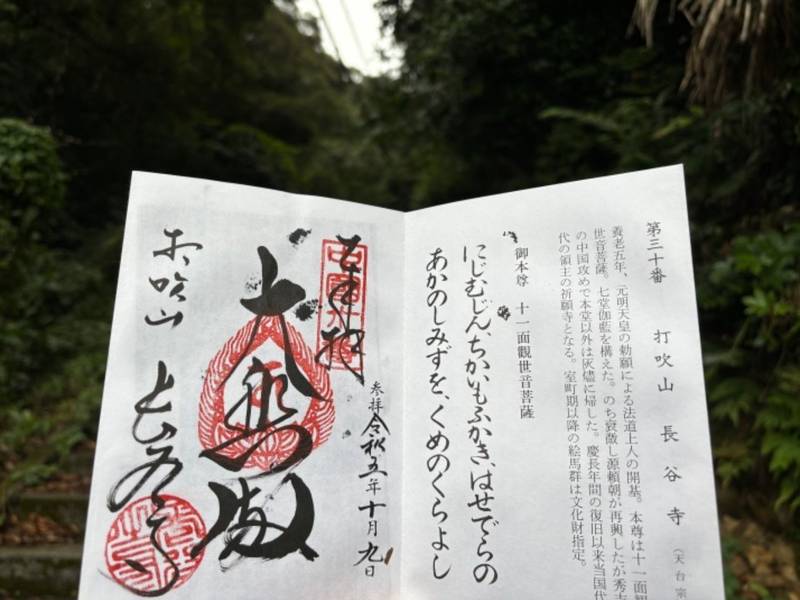 第三十番 打吹山 長谷寺 (天台宗
養老五年、元明天皇の勅願による法道上人の開基。本尊は十一面観
世音菩薩。七堂伽藍を構えた。のち衰微し源頼朝が再興したが秀吉
の中国攻めで本堂以外は灰燼に帰した。慶長年間の復旧以来当国代
代の領主の祈願寺となる。室町期以降の絵馬群は文化財指定。
御本尊 十一面觀世音菩薩
にじむじん、ちかいもふかき、はせでらの
あかのしみずを、くめのくらよし
参拝 令和五年十月九日
奉拝
大悲殿
打吹山 長谷寺